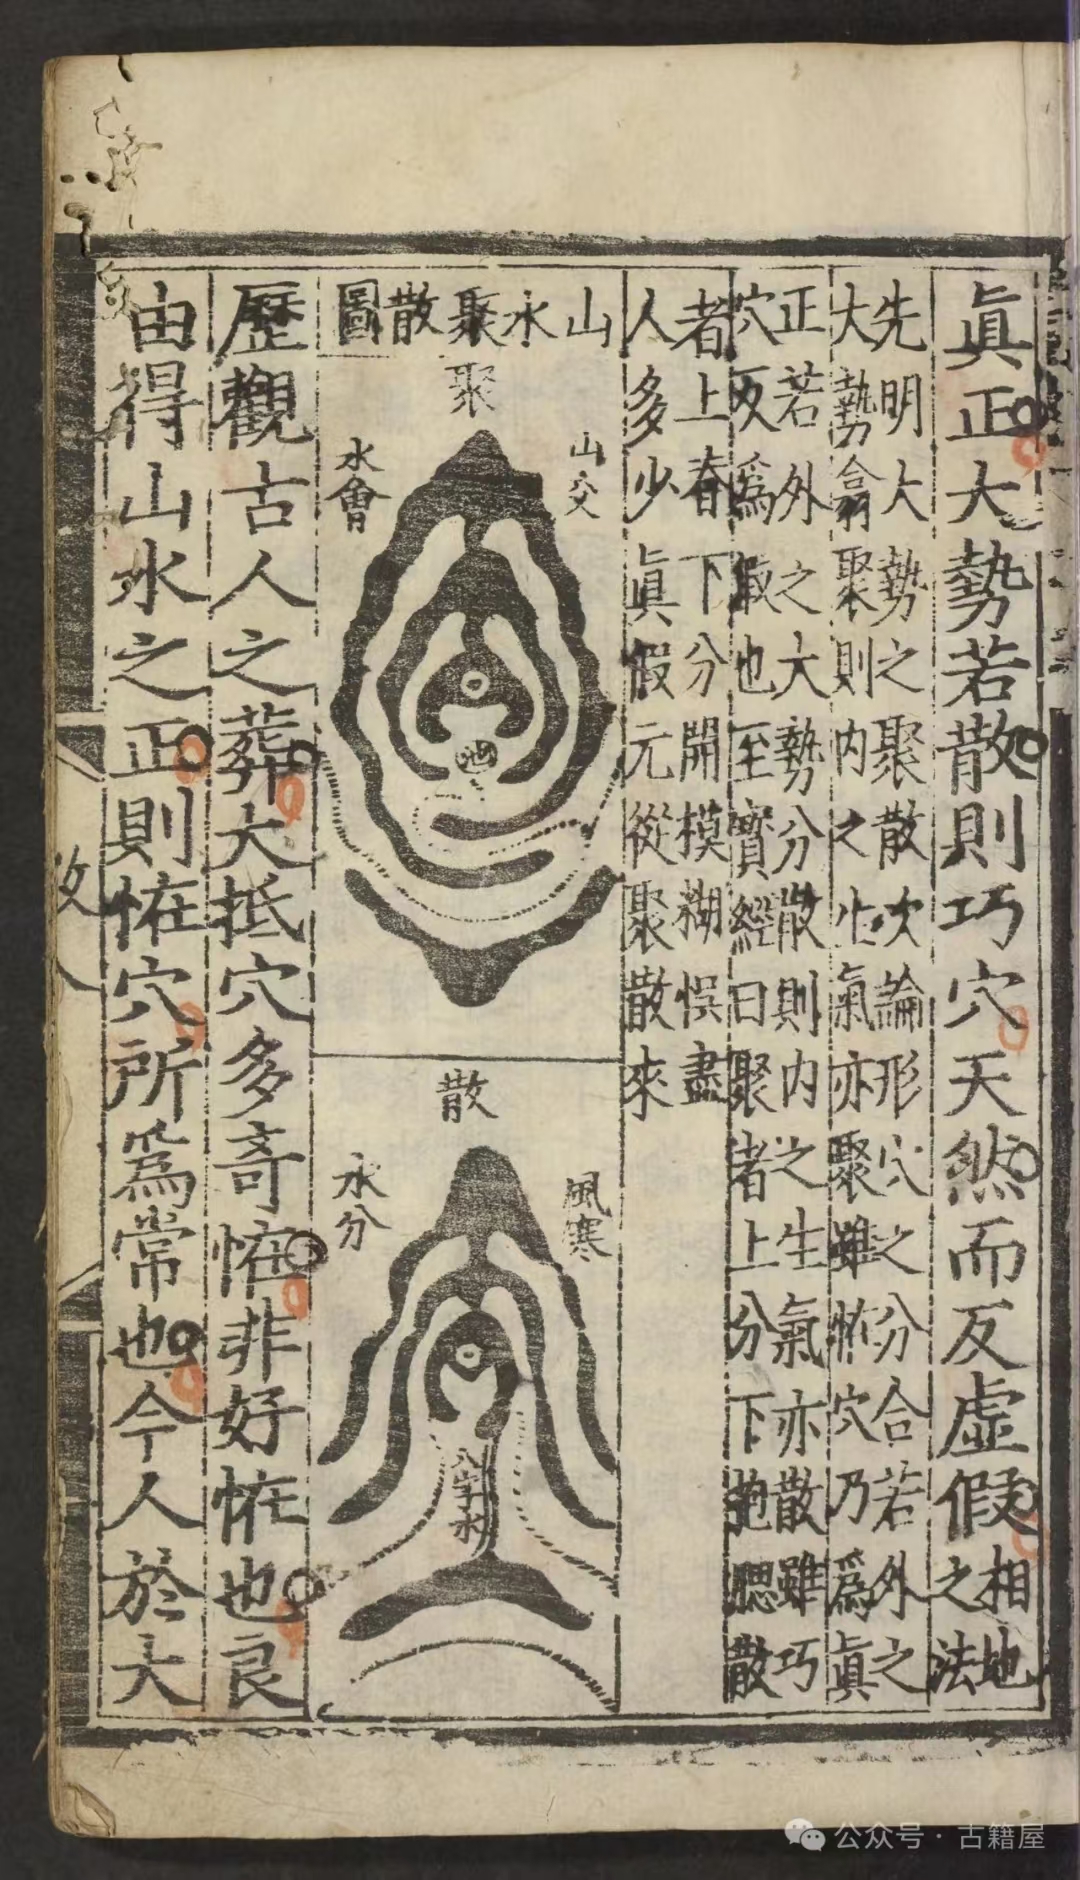 眞正大勢若散則巧穴天然而反虛假相地
之法
先明大勢之聚散次論形穴之分合若外之
大勢翕聚則内之生氣亦聚雖恠穴乃爲眞
正若外之大勢分散則内之生氣亦散雖巧
穴反爲假也至寳經曰聚者上分下抱腮散
者上舂下分開模糊悮盡
人多少眞假元從聚散來
山水聚散圖
聚
山交
水會
池
散
風寒
水分
八字水
歷觀古人之葬大抵穴多竒恠非好恠也良
由得山水之正則恠穴所爲常也今人於大
公众号 · 古籍屋